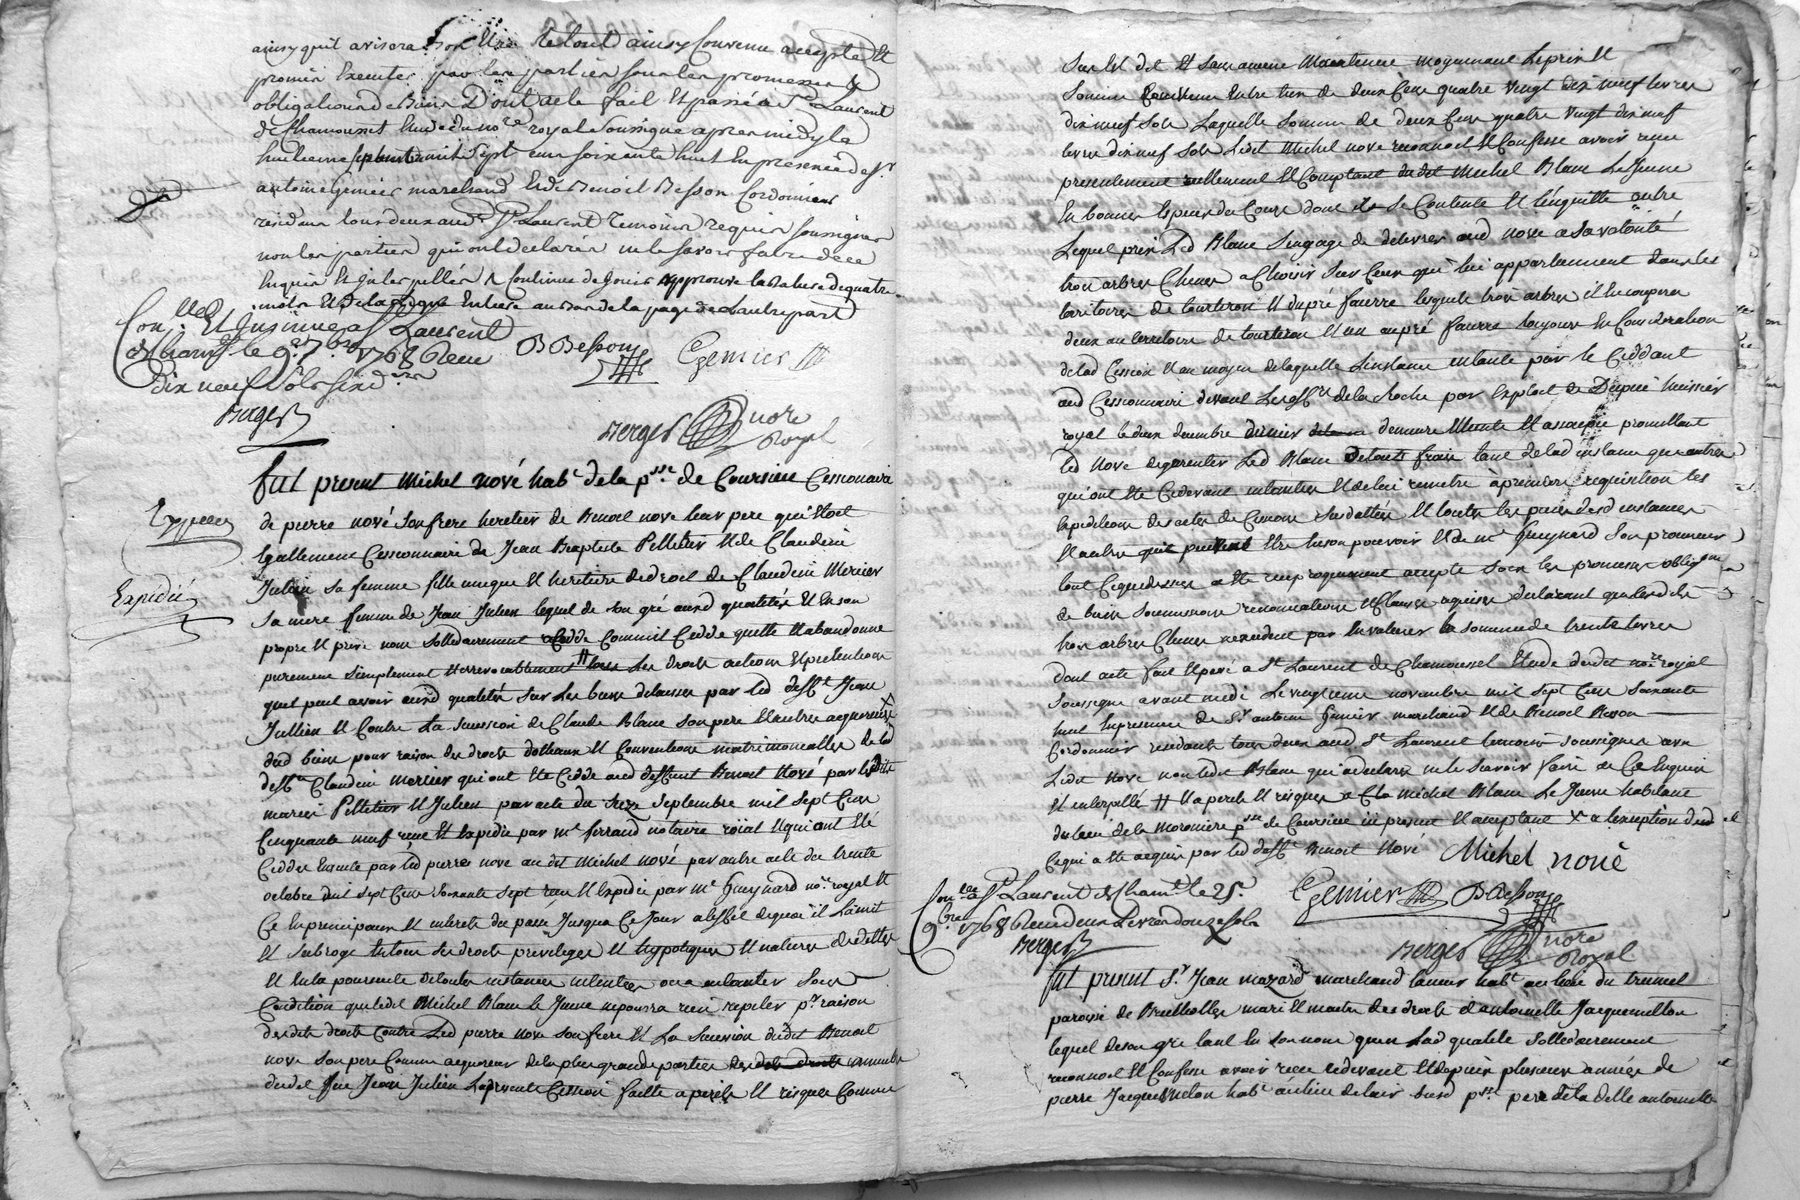 ainsy quil avisera le tout ainsy convenu accepté et
promis executer par les parties sous les promesses et
obligations de biens Dont acte fait et passé a St Laurent
de Chamousset etude du nore royal soussigné apres midy le
huitieme mil sept cens soixante huit en presence de Sr
antoine Gemier marchand et de Benoit Besson Cordonnier
residans tous deux aud St Laurent temoins requis soussignes
non les parties qui ont declaré ne le savoir faire de ce
enquis et interpellés
Con.llé Et Insinué a St Laurent
de Cham.t le 9e 7bre 1768 Reçu
dix neuf sols six d.ers
Berger
B Besson Gemier
Berger nore Royal
fut present Michel nové hab.t de la p.sse de Coursieu Cessionaire
Expedié
de pierre nové son frere heretier de Benoit nové leur pere qui etoit
egallement Cessionnaire de Jean Baptiste Pelletier et de Claudine
Julien sa femme fille unique et heretiere de droit de Claudine Merier
sa mere femme de Jean Julien lequel de son gré aud qualités et en son
propre et privé nom sollidairement Cedde Commit Cedde quitte et abandonne
purement simplement et irrevocablement tous les droits actions et pretentions
quil peut avoir aud qualités sur les biens delaissés par led defft Jean
Jullien et Contre la sucession de Claude Blanc son pere et autres acquereurs
dud biens pour raison des droits dotteaux et Conventions matrimonialles de lad
deffte Claudine merier qui ont été Cedde aud deffunt Benoit Nové par lesdits
mariés Pelletier et Julien par acte du seize septembre mil sept cens
Cinquante neuf reçu et expedie par me ferrand notaire roïal et qui ont été
Ceddés ensuite par led pierre nové au dit Michel nové par autre acte du trente
octobre mil sept Cens soixante sept reçu et expedié par me Guynard nore royal et
Ce en principaux et interets du passé jusqua Ce jour a leffet de quoi il la mit
et subrogé en tous ses droits privileges et hypoteques et natures de dettes
et en la poursuite de toutes instances intentées ou a intenter sous
Condition que ledit Michel Blanc le Jeune ne poura rien repeter pr raison
desdits droits contre led pierre nové son frere et la sucession dudit Benoit
nové son pere Comme acquereur de la plus grande partie des immeubles
dudit feu Jean Julien La presente Cession faitte a perils et risques Comme
sus est dit et sans aucune Maintenue moyennant le prix et
somme Convenue entre eux de deux Cens quatre vingt dix neuf livres
dix neuf sols Laquelle somme de deux Cens quatre vingt dix neuf
livres dix neuf sols Ledit Michel nové reconnoit et Confesse avoir reçu
presentement reellement et Comptant dudit Michel Blanc Le Jeune
en bonnes especes du Cours dont il se Contente et l'enquitte outre
Lequel prix Led Blanc s'engage de delivrer aud nové a sa volonté
trois arbres Chenes a Choisir sur Ceux qui lui appartiennent dans les
territoires de tourteron et du pré faurre lesquels trois arbres il en coupera
deux au territoire de tourteron et un au pré faurre toujours en Consideration
de lad Cession et au moyen de laquelle Linstance intantée par le Ceddant
aud Cessionnaire devant Les de la Roche par exploit de Dupué huissier
royal le deux decembre dernier demeure eteinte et assoupie promettant
led Nové de garentir Led Blanc de touts frais tant de lad instance que autres
qui ont été Cidevant intantées et de lui remettre a premiere requisition les
expeditions des actes de Cessions susdattés et touttes les pieces desd instances
et autres qui peuvent etre en son pouvoir et de me Guynard son procureur
tout Ce que dessus a été reciproquement accepté sous les promesses obligons
de biens soumissions renonciations et Clauses requises declarant que lesdits
trois arbres Chenes nexcedent pas en valeur la somme de trente livres
dont acte fait et passé a St Laurent de Chamousset etude dudit nore royal
soussigné avant midi le vingtieme novembre mil sept cens soixante
huit en presence de Sr antoine Gemier marchand et de Benoit Besson
Cordonnier residants tous deux aud St Laurent temoins soussignés avec
Ledit Nové non ledit Blanc qui a declaré ne le savoir faire de Ce Enquis
et interpellé # et a perils et risques a Cto Michel Blanc Le Jeune habitant
du lieu de la Moroniere psse de Coursieu ici present et acceptant X a lexeption dud
Cequi a été acquis par led defft Benoit Nové Michel nové
Con.llé a St Laurent de Cham.t le 25e
9bre 1768 Reçu deux Livres douze sols
Berger
Gemier B Besson
Berger nore Royal
fut present Sr Jean mazard marchand taneur habt au lieu du trunel
paroisse de Brullioles mari et maitre des droits d'antoinette Jacquemetton
lequel de son gré tant en son nom quen lad qualité sollidairement
reconnoit et Confesse avoir reçu cidevant et depuis plusieurs années de
pierre Jacquemeton habt au lieu delair susd psse pere de la dette antoinette